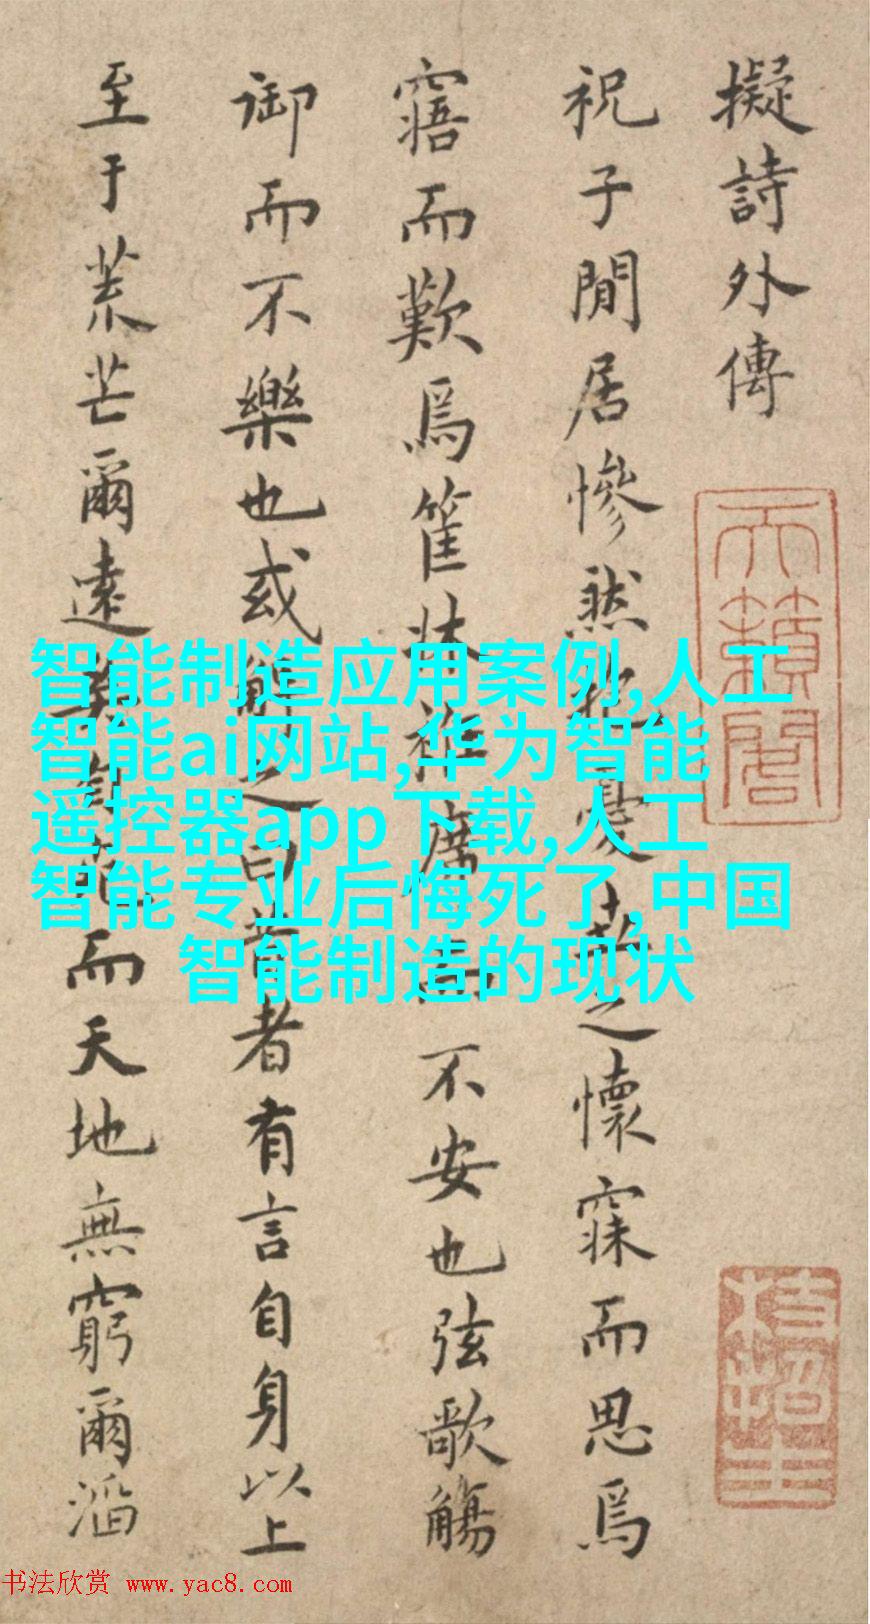 擬詩外傳
祝子閒居慘然抱憂勤之懷寐而思焉
寤而歎焉筐牀袵席而不安也弦歌觴
御而不樂也或解之曰昔者有言自身以上
至于荒芒爾遠矣自死而天地無窮爾滔
天籟閣
枝指生
智能制造应用案例,人工
智能ai网站,华为智能
遥控器app下载,人工
智能专业后悔死了,中国
智能制造的现状
书法欣赏 www.yac8.com